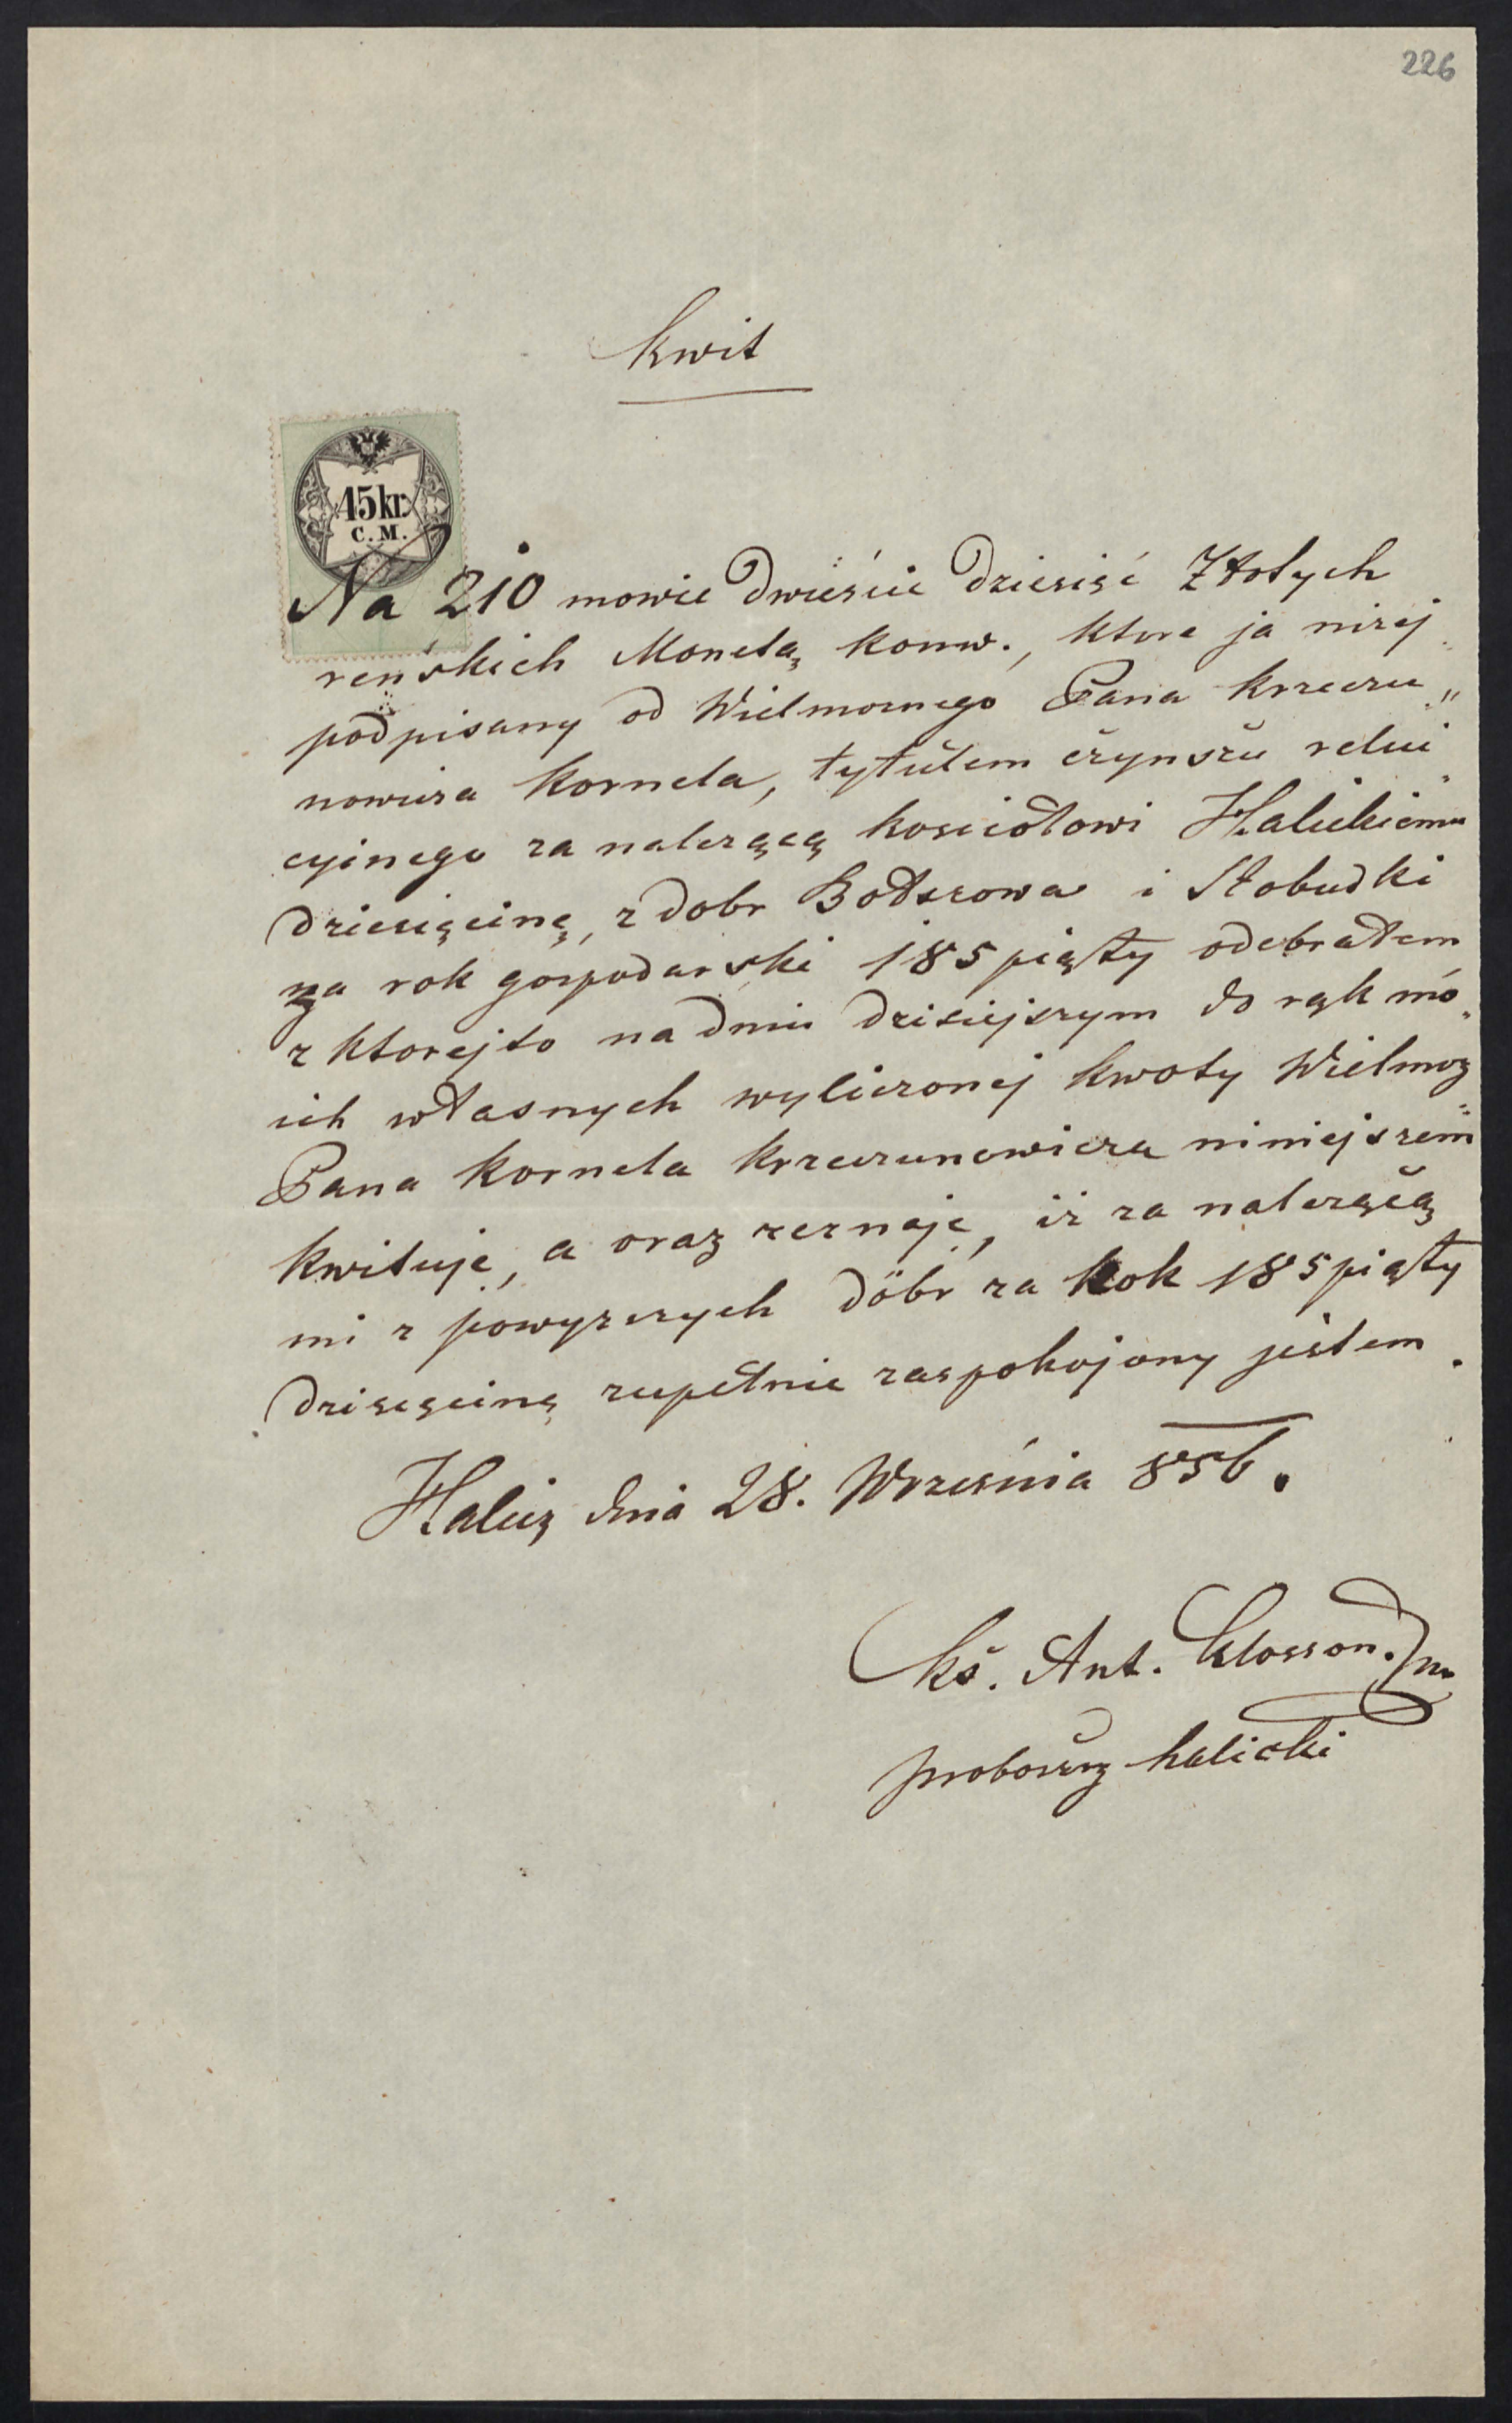 226
Kwit
15 kr.
C. M.
Na 210 mowie Dwieście Dziesięć Złotych
reńskich Monetą konw., które ja niżej
podpisany od Wielmożnego Pana Krzeczu„
nowicza Kornela, tytułem czynszu relui„
cyinego za należącą kościołowi Halickiemu
Dziesięcinę, z Dobr Bołszowa i Słobudki
za rok gospodarski 185piąty odebrałem
z ktorejto na dniu dzisiejszym do rąk mo„
ich własnych wyliczonej kwoty Wielmoż
Pana Kornela Krzeczunowicza niniejszem
kwituję, a oraz zeznaję, iż za należącą
mi z powyższych dóbr za Rok 185piąty
Dzisięcinę zupełnie zaspokojony jestem.
Halicz dnia 28. Września 856.
Kś. Ant. Klosson.
proboszcz halicki